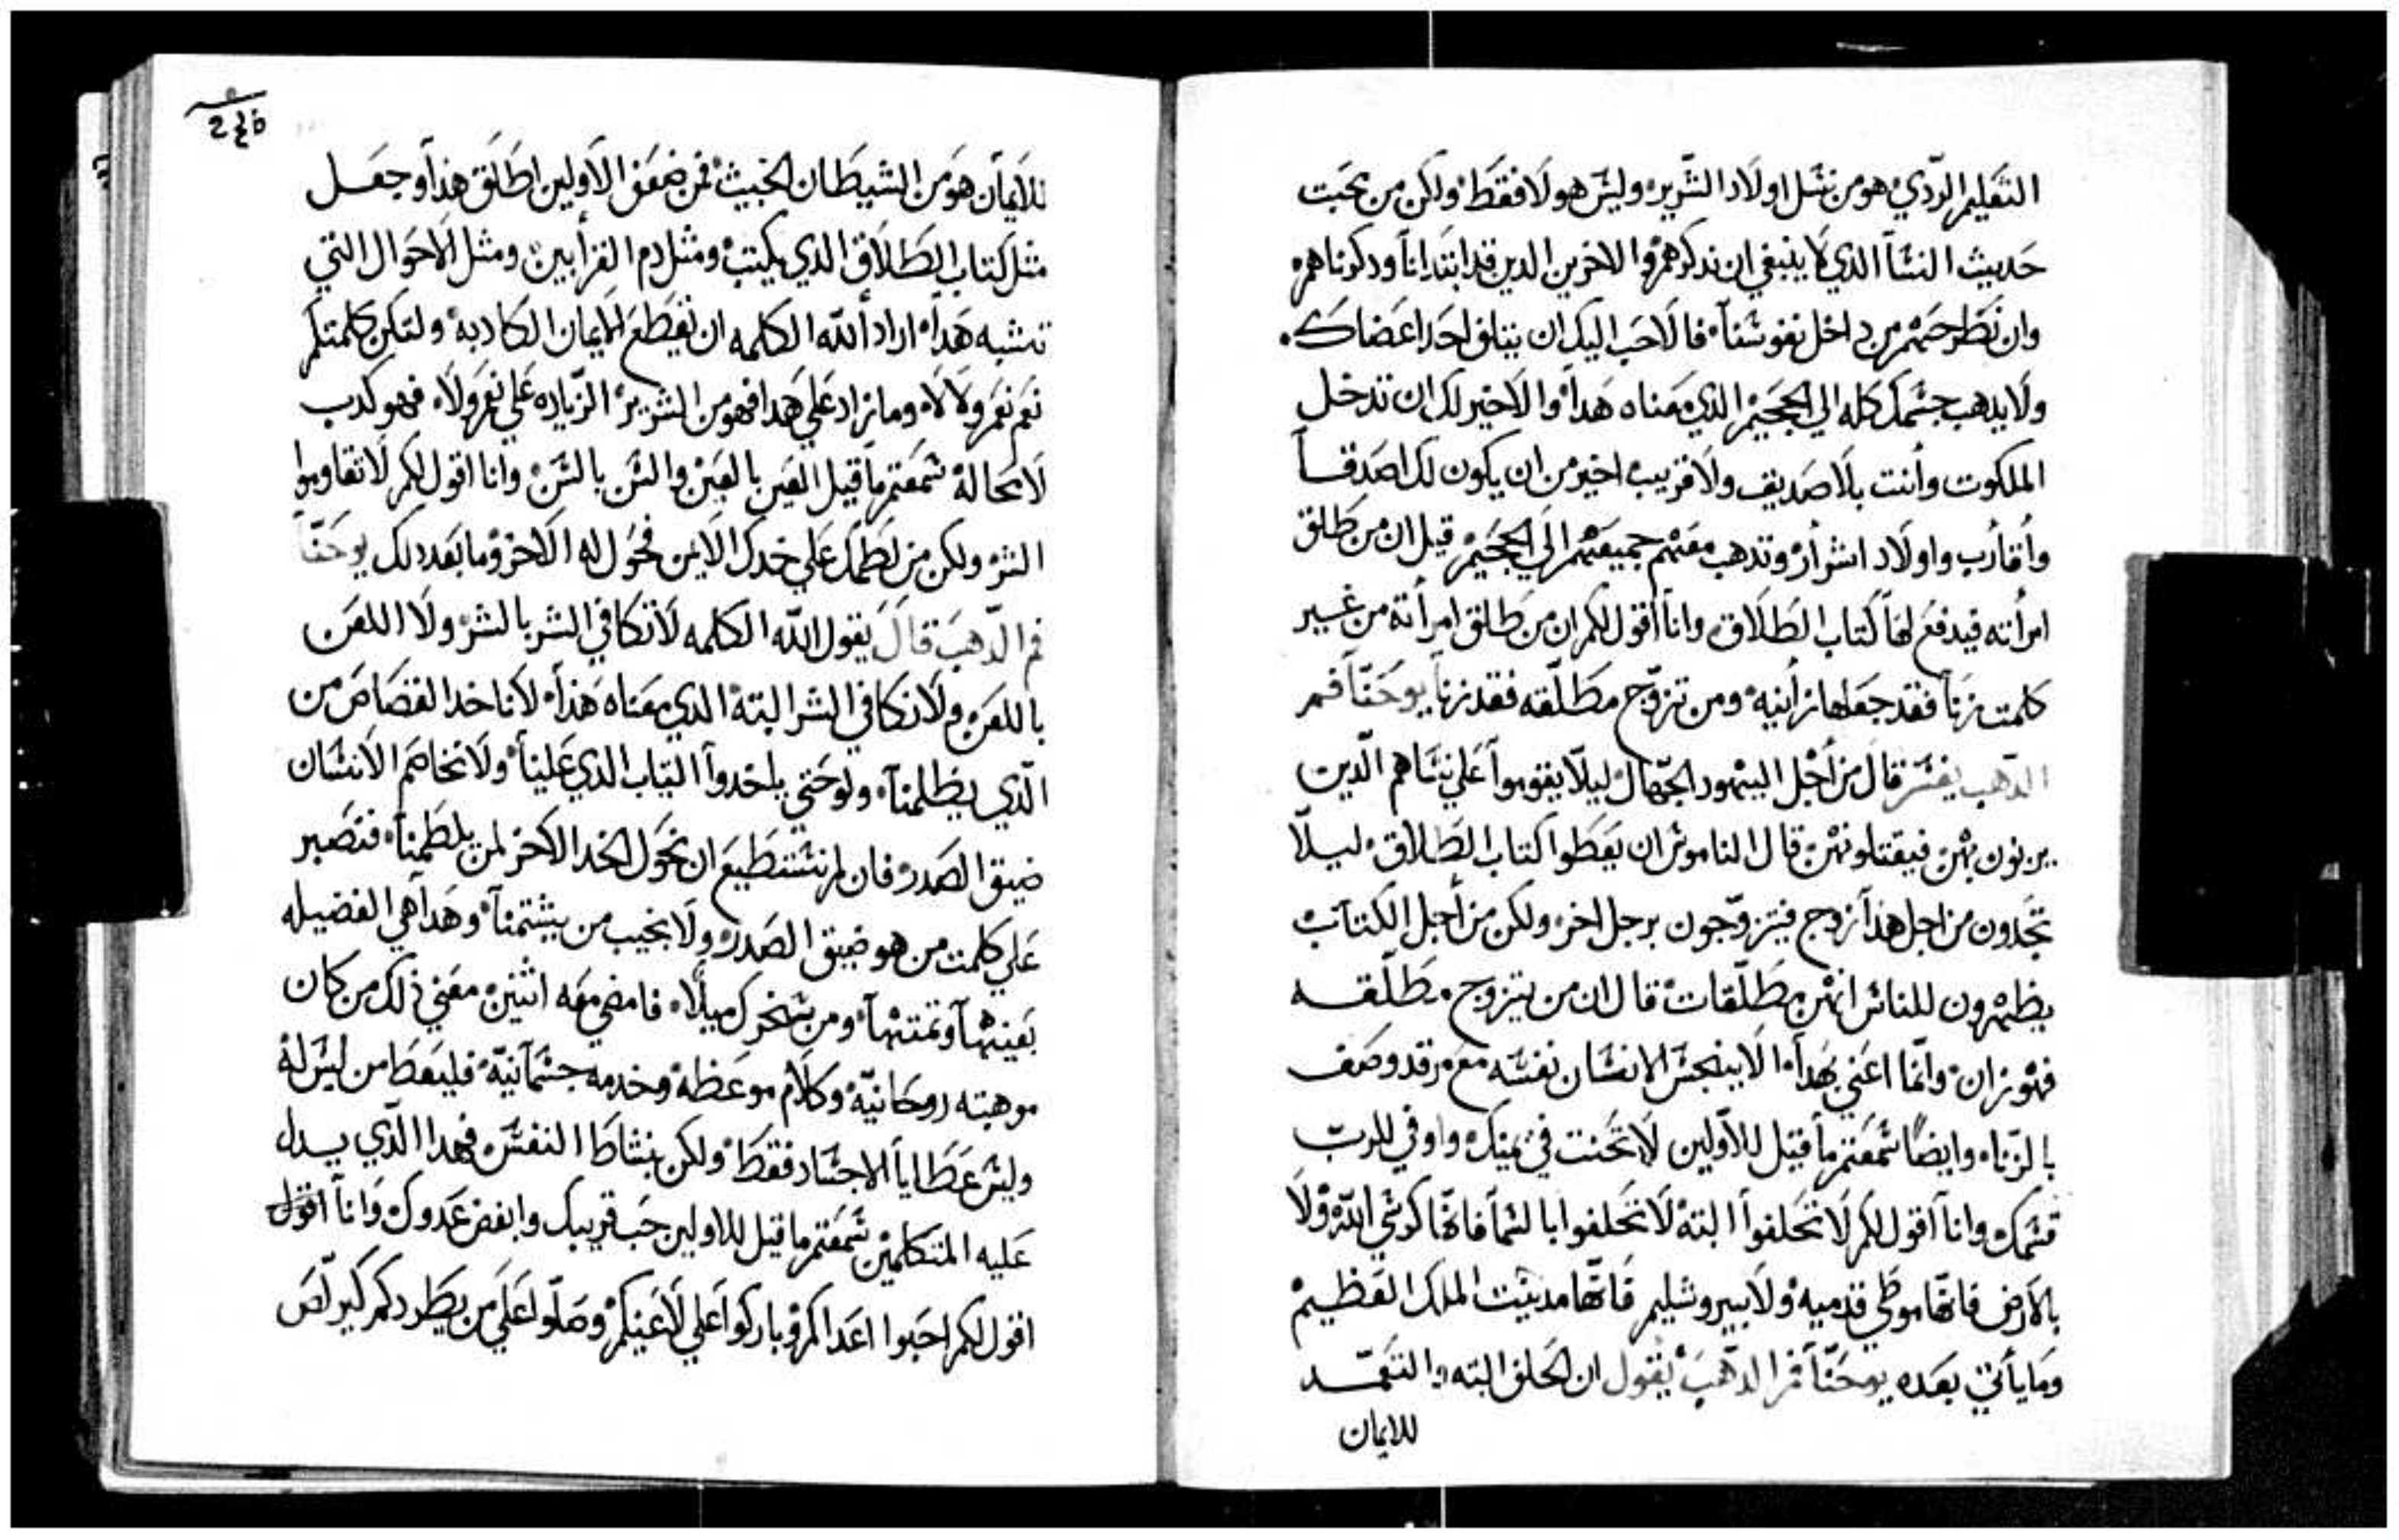 التعليم الردي هو من نسل اولاد الشرير وليس هولا فقط ولكن من بحبت
حديث النسآ الذي لا ينبغي ان ندكرهم والاخرين الدين قد ابتدانا ودكرناهم
وان نطرحهم من داخل نفوسنآ فالاحب اليك ان يتلف احد اعضاك
ولا يدهب جسمك كله الي الججيم الذي معناه هدا والاخير لك ان تدخل
الملكوت وأنت بلا صديق ولا قريب اخير من ان يكون لك اصدقآ
وأقارب واولاد اشرار وتدهب معهم جميعهم الي الججيم قيل ان من طلق
امرأته فيدفع لها كتاب الطلاق وانا اقول لكم ان من طلق امرأته من غير
كلمت زنا فقد جعلها زانيه ومن تزوج مطلقه فقد زنا يوحنّا فم
الدهب يفسر قال من اجل اليهود الجهال ليلا يفوموا علي نساهم الدين
يزنون بهن فيقتلونهن قال الناموس ان يعطوا كتاب الطلاق ليلا
تجدون من اجل هذا زوج فيتزوجون برجل اخر ولكن من اجل الكتاب
يظهرون للناس انهن مطلقات قال ان من يتزوج مطلقه
فهو زان وانما اعني بهدا الا ينجس الانسان نفسه مع من قد وصف
بالزناه وايضا سمعتم ما قيل للاولين لا تحنت في يمينك واوفي للرب
قسمك وانا اقول لكم لا تحلفوا البته لا تحلفوا بالسما فانها كرسي الله ولا
بالارض فانها موطي قدميه ولا بيروشليم فانها مدينت الملك العظيم
وما يأتي بعده يوحنّا فم الدهب يقول ان الحلف البته والتعمد
للايمان
245
للايمان هو من الشيطان الخبيث فمن ضعف الاولين اطلق هذا وجعل
مثل كتاب الطلاق الذي يكتب ومثل دم القرابين ومثل الاحوال التي
تشبه هدا اراد الله الكلمه ان يقطع الايمان الكادبه ولتكن كلمتكم
نعم نعم ولا لا وما زاد علي هدا فهو من الشرير الزياده علي نعم ولا فهو كدب
لا محالة سمعتم ما قيل العين بالعين والسن بالسن وانا اقول لكم لا تقاوموا
الشر ولكن من لطمك علي خدك الايمن فحول له الاخر وما بعد دلك يوحنّا
فم الدهب قال يقول الله الكلمه لا تكافي الشر بالشر ولا اللعن
باللعن ولا نكافي الشر البته الدي معناه هذا لا ناخد القصاص من
الذي يظلمنا ولو حتي ياخدوا التياب الذي علينا ولا نخاصم الانسان
ضيق الصدر فان لم نستطيع ان نحول الخد الاخر لمن يلطمنا فنصبر
علي كلمت من هو ضيق الصدر ولا نجيب من يشتمنا وهدا هي الفضيله
بعينها وتمتها ومن سخرك ميلا فامضي معه اثنين معني ذلك من كان
موهبته روحانية وكلام موعظة وخدمه جسمانية فليعط من ليس له
وليس عطايا الاجساد فقط ولكن بنشاط النفس فهدا الذي يسل
عليه المتكلمين سمعتم ما قيل للاولين حب قريبك وابغض عدوك وانا اقول
اقول لكم احبوا اعداكم وباركوا علي لاعنيكم وصلوا علي من يطردكم